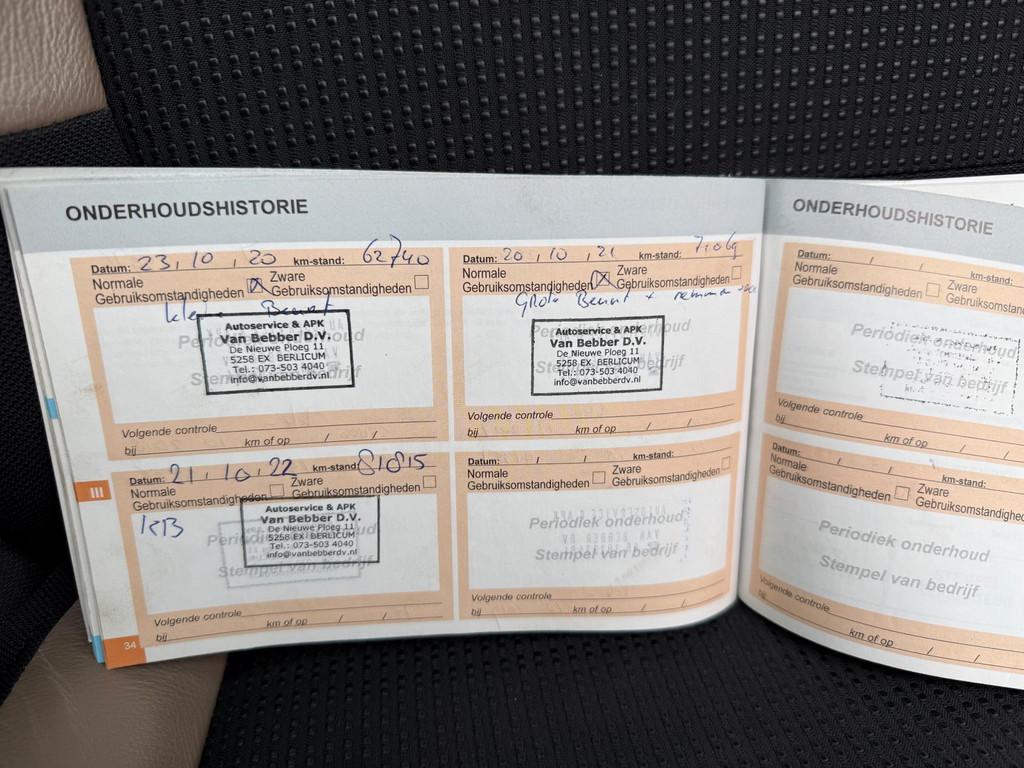 ONDERHOUDSHISTORIE
Datum: 23, 10, 20 km-stand: 62740
Normale Gebruiksomstandigheden Zware Gebruiksomstandigheden
Autoservice & APK
Van Bebber D.V.
De Nieuwe Ploeg 11
5258 EX BERLICUM
Tel.: 073-503 4040
info@vanbebberdv.nl
Volgende controle
bij km of op / /
Datum: 20, 10, 21 km-stand:
Normale Gebruiksomstandigheden Zware Gebruiksomstandigheden
Grote Beurt +
Periodiek onderhoud
Autoservice & APK
Van Bebber D.V.
De Nieuwe Ploeg 11
5258 EX BERLICUM
Tel.: 073-503 4040
info@vanbebberdv.nl
Stempel van bedrijf
Volgende controle
bij km of op / /
III
Datum: 21, 10, 22 km-stand: 81815
Normale Gebruiksomstandigheden Zware Gebruiksomstandigheden
KB
Autoservice & APK
Van Bebber D.V.
De Nieuwe Ploeg 11
5258 EX BERLICUM
Tel.: 073-503 4040
info@vanbebberdv.nl
Stempel van bedrijf
Volgende controle
bij km of op / /
34
Datum: / / km-stand:
Normale Gebruiksomstandigheden Zware Gebruiksomstandigheden
Periodiek onderhoud
Stempel van bedrijf
Volgende controle
bij km of op / /
ONDERHOUDSHISTORIE
Datum: / / km-stand:
Normale Gebruiksomstandigheden Zware
Periodiek onderhoud
Stempel van bedrijf
Volgende controle
bij km of op / /
Datum: / / km-stand:
Normale Gebruiksomstandigheden Zware
Periodiek onderhoud
Stempel van bedrijf
Volgende controle
bij km of op / /